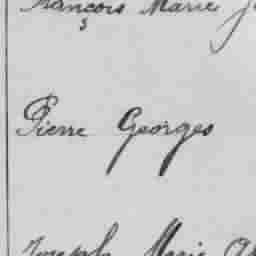 François Marie
Pierre Georges
Joseph Marie